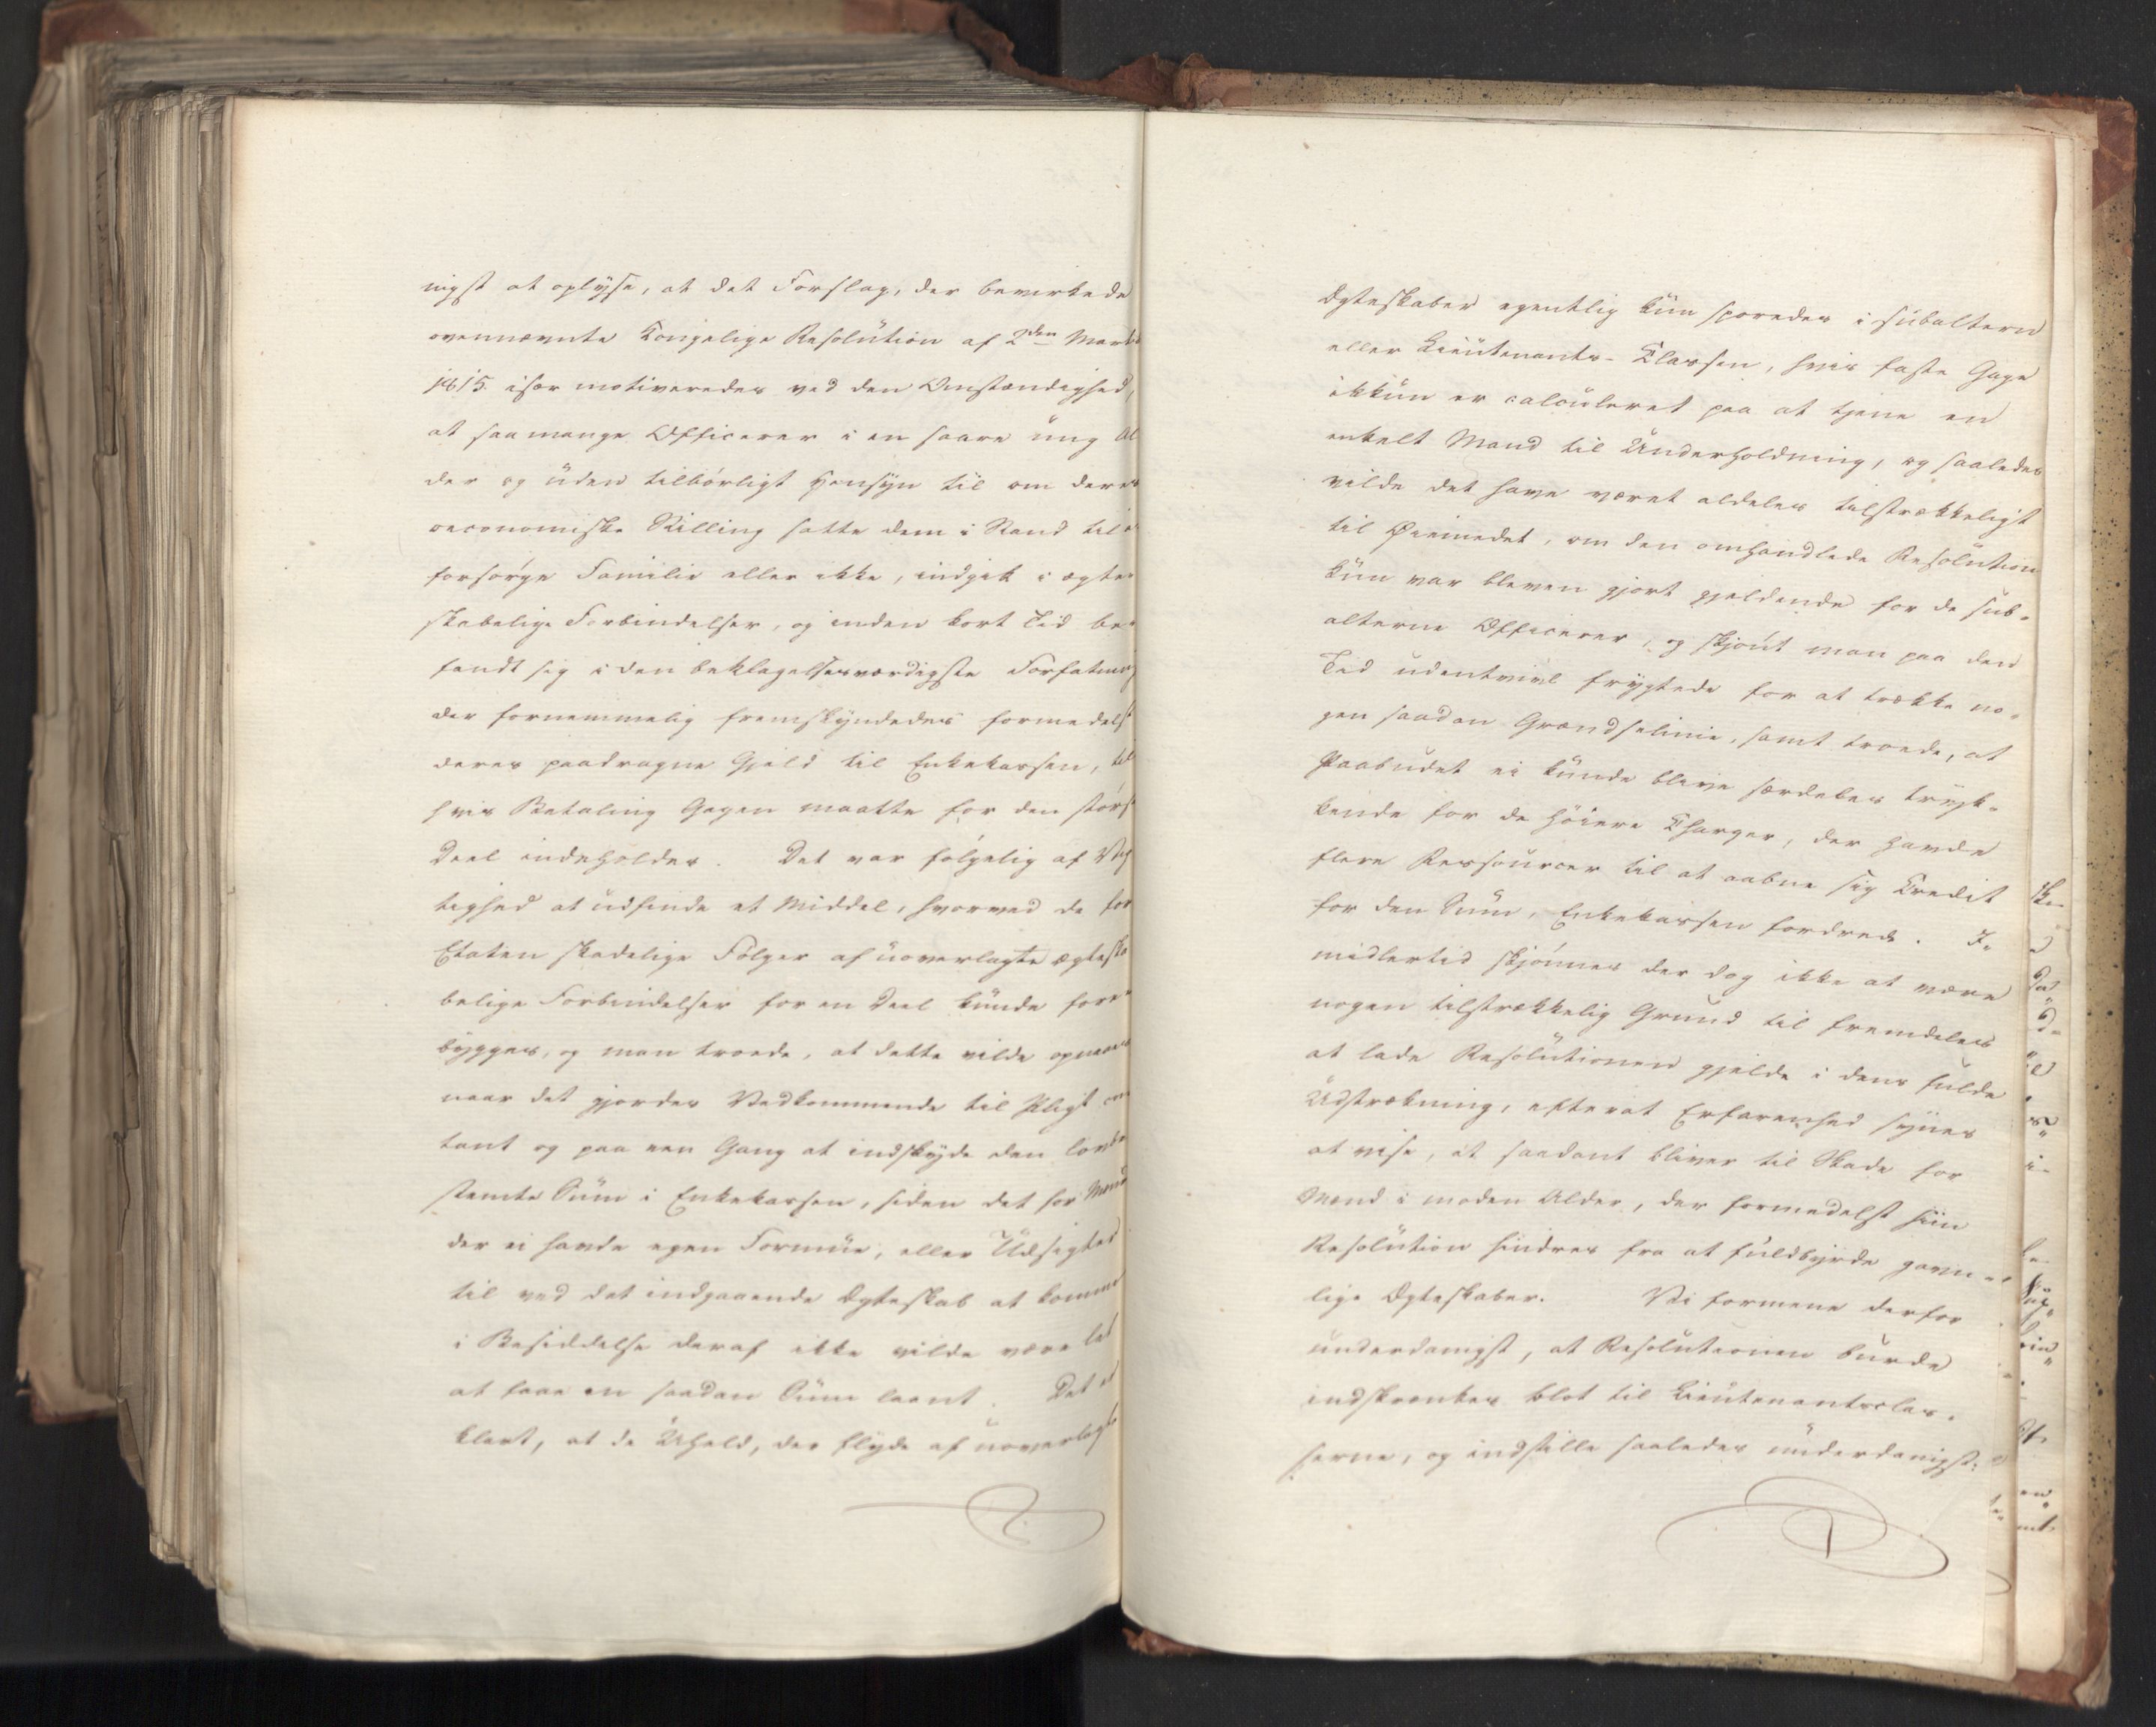 nigst at oplyse, at det Forslag, der bevirkede
ovennævnte Kongelige Resolution af 2den Marts
1815 især motiveredes ved den Omstændighed,
at saa mange Officerer i en saare ung Al
der og uden tilbörligt Hensyn til om deres
oeconomiske Stilling satte dem i Stand til at
forsörge Familie eller ikke, indgik i ægte
skabelige Forbindelser, og inden kort Tid be-
fandt sig i den beklagelsesværdigste Forfatning
der fornemmelig fremskyndedes formedelst
deres paadragne Gjeld til Enkekassen, til
hvis Betaling Gagen maatte for den störst
Deel indeholdes. Det var fölgelig af Vig
tighed at udfinde et Middel, hvorved de for
Etaten skadelige Fölger af uoverlagte ægteska
belige Forbindelser for en Deel kunde fore-
bygges, og man troede, at dette vilde opnaaes
naar det gjordes Vedkommende til Pligt con
tant og paa een Gang at indskyde den lovbe
stemte Sum i Enkekassen, siden det for Mænd
der ei havde egen Formue, eller Udsigter
til ved det indgaaende Ægteskab at komme
i Besiddelse deraf ikke vilde være let
at faae en saadan Sum laant. Det er
klart, at de Uheld, der flyde af uoverlagte
Ægteskaber egentlig kun sporedes i subaltern
eller Lieutenants-Klassen, hvis faste Gage
ikkun er calculeret paa at tjene en
enkelt Mand til Underholdning, og saaledes
vilde det have været aldeles tilstrækkeligt
til Öiemedet, om den omhandlede Resolution
kun var bleven gjort gjeldende for de sub-
alterne Officerer, og skjönt man paa den
Tid udentvivl frygtede for at trække no-
gen saadan Grændselinie, samt troede, at
Paabudet ei kunde blive særdeles tryk-
kende for de höiere Charger, der havde
flere Ressourcer til at aabne sig Credit
for den Sum, Enkekassen fordrede. I-
midlertid skjönnes der dog ikke at være
nogen tilstrækkelig Grund til fremdeles
at lade Resolutionen gjelde i dens fulde
Udstrækning, efterat Erfarenhed synes
at vise, at saadant bliver til Skade for
Mænd i moden Alder, der formedelst hiin
Resolution hindres fra at fuldbyrde gavn-
lige Ægteskaber. Vi formene derfor
underdanigst, at Resolutionen burde
indskrænkes blot til Lieutenantsclas-
serne, og indstille saaledes underdanigst: